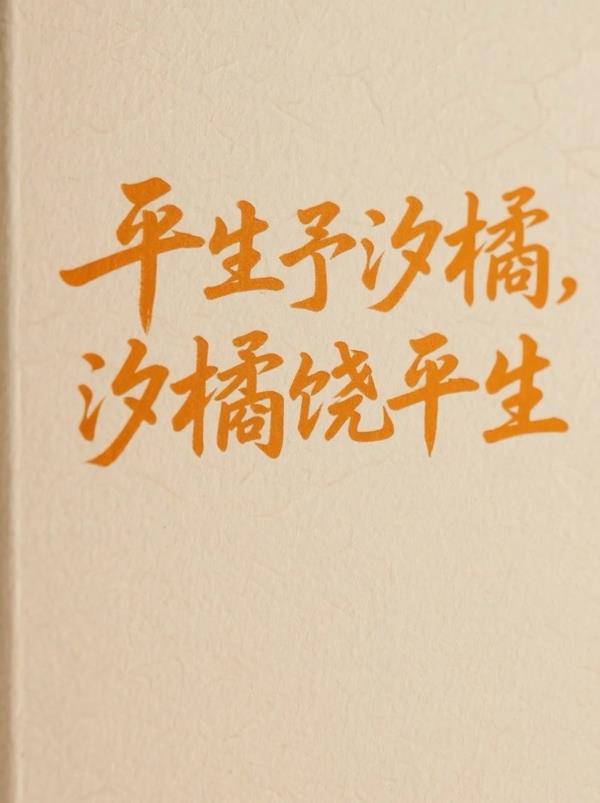 平生予汐橘,
汐橘饶平生